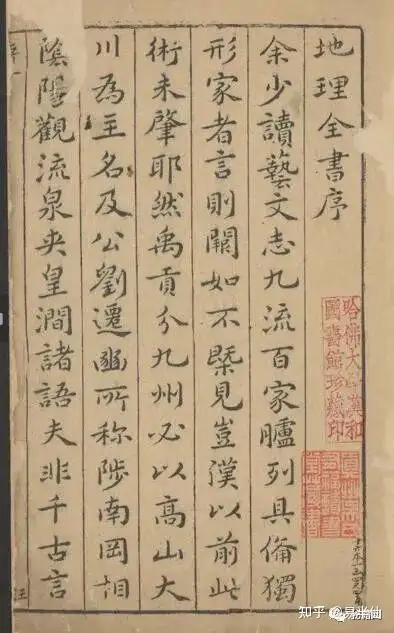 地理全書序
余少讀藝文志九流百家臚列具備獨
形家者言則闕如不槩見豈漢以前此
術未肇耶然禹貢分九州必以高山大
川為主名及公劉遷豳所稱陟南岡相
陰陽觀流泉夾皇澗諸語夫非千古言
哈佛大學漢和
圖書館珍藏印
知乎